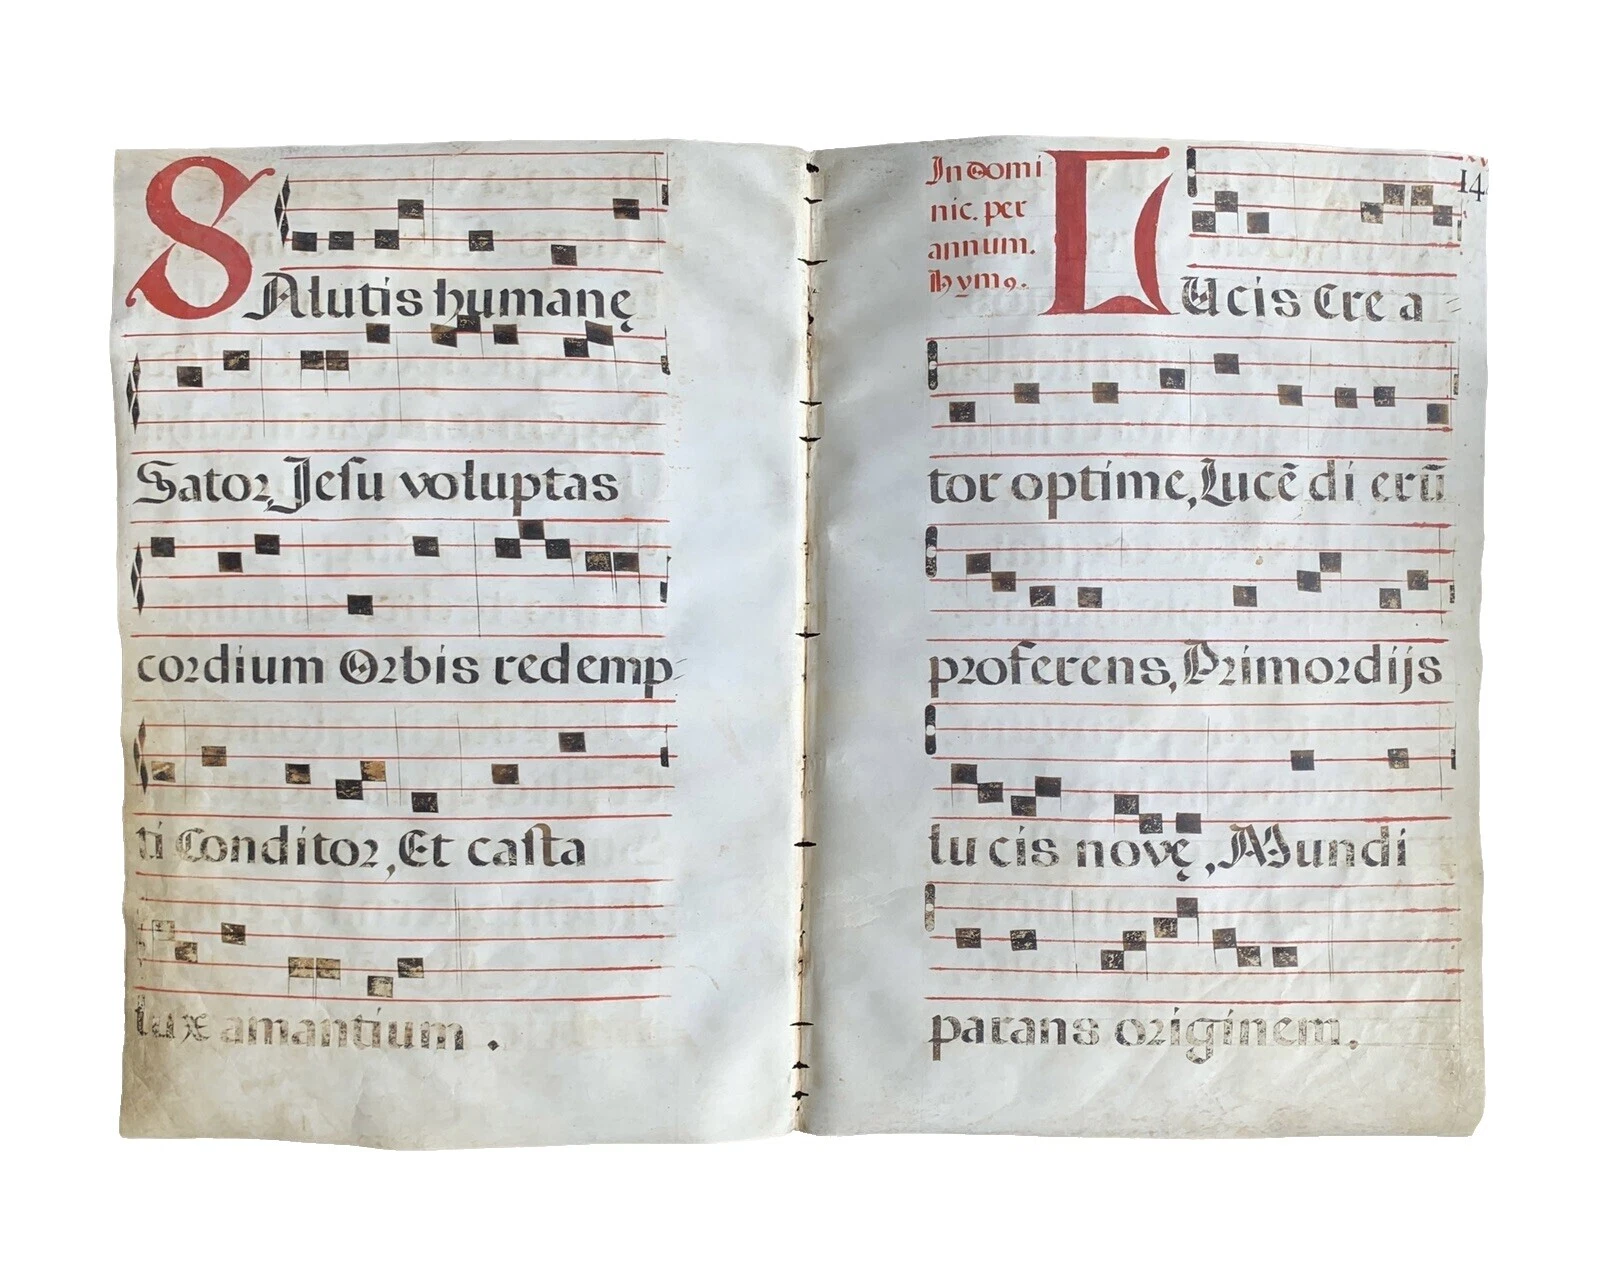 SAlutis humanę
Sator, Jesu voluptas
cordium Orbis redemp=
ti Conditor, Et casta
lux amantium.
In domi
nic. per
annum.
hym9.
14
LUcis Cre a=
tor optime, Lucē di erū
proferens, Primordijs
lu cis novę, Mundi
parans originem.